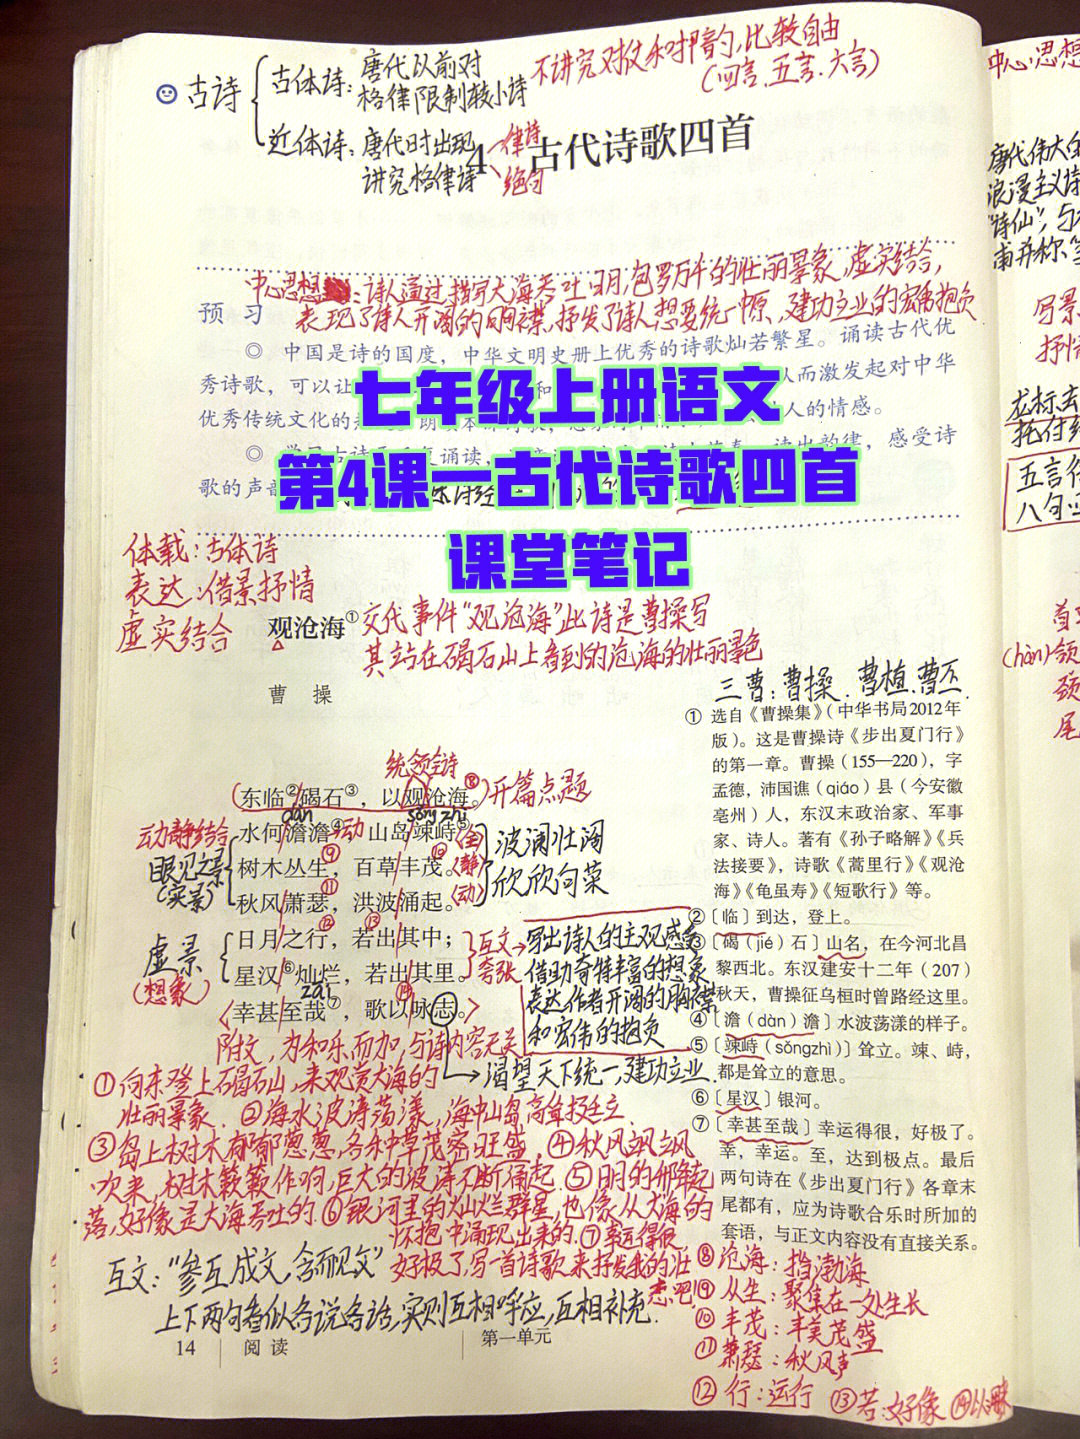 古诗
古体诗：唐代以前对
格律限制较小诗
不讲究对仗和押韵,比较自由
(四言、五言、六言)
近体诗：唐代时出现
讲究格律诗
律诗
绝句
4 古代诗歌四首
中心思想：诗人通过描写大海吞吐日月,包罗万千的壮丽景象,虚实结合,
表现了诗人开阔的胸襟,抒发了诗人想要统一中原,建功立业的宏伟抱负
预 习
◎ 中国是诗的国度，中华文明史册上优秀的诗歌灿若繁星。诵读古代优
秀诗歌，可以让
人而激发起对中华
优秀传统文化的
人的情感。
七年级上册语文
第4课—古代诗歌四首
课堂笔记
诵读，
感受诗
歌的声
体载：古体诗
表达：借景抒情
虚实结合
观沧海①
交代事件"观沧海"此诗是曹操写
其站在碣石山上看到的沧海的壮丽景色
曹 操
三曹：曹操、曹植、曹丕
统领全诗
东临②碣石③，以观沧海⑧。
开篇点题
dàn
sǒng zhì
水何澹澹④，山岛竦峙⑤。
树木丛生⑨，百草丰茂⑩。
秋风萧瑟⑪，洪波涌起。
动静结合
眼见之景
(实景)
动
(静)
(动)
波澜壮阔
欣欣向荣
日月之行⑫，若⑬出其中；
星汉⑥灿烂，若出其里。
虚景
(想象)
互文
夸张
写出诗人的主观感受
借助奇特丰富的想象
表达作者开阔的胸襟
和宏伟的抱负
zāi
幸甚至哉⑦，歌以⑭咏志。
附文，为和乐而加,与诗内容无关
渴望天下统一,建功立业.
①向东登上碣石山,来观赏大海的
壮丽景象.②海水波涛荡漾,海中山岛高耸挺立
③岛上树木郁郁葱葱,各种草茂密旺盛.④秋风飒飒
吹来,树木簌簌作响,巨大的波涛不断涌起.⑤日月的升降起
落,好像是大海吞吐的.⑥银河里的灿烂群星,也像从大海的
怀抱中涌现出来的.⑦幸运得很
好极了,写一首诗歌来抒发我的壮
志吧!
互文："参互成文,含而见文"
上下两句看似各说各话,实则互相呼应,互相补充.
① 选自《曹操集》（中华书局2012年
版）。这是曹操诗《步出夏门行》
的第一章。曹操（155—220），字
孟德，沛国谯（qiáo）县（今安徽
亳州）人，东汉末政治家、军事
家、诗人。著有《孙子略解》《兵
法接要》，诗歌《蒿里行》《观沧
海》《龟虽寿》《短歌行》等。
②〔临〕到达，登上。
③〔碣（jié）石〕山名，在今河北昌
黎西北。东汉建安十二年（207）
秋天，曹操征乌桓时曾路经这里。
④〔澹（dàn）澹〕水波荡漾的样子。
⑤〔竦峙（sǒngzhì）〕耸立。竦、峙，
都是耸立的意思。
⑥〔星汉〕银河。
⑦〔幸甚至哉〕幸运得很，好极了。
幸，幸运。至，达到极点。最后
两句诗在《步出夏门行》各章末
尾都有，应为诗歌合乐时所加的
套语，与正文内容没有直接关系。
⑧沧海：指渤海
⑨丛生：聚集在一处生长
⑩丰茂：丰美茂盛
⑪萧瑟：秋风声
⑫行：运行 ⑬若：好像
14 阅读
第一单元
中心思想
唐代伟大的
浪漫主义诗
"诗仙"，与
甫并称
写景
抒情
龙标去
托付给
五言律
八句
(hàn)颔
颈
尾